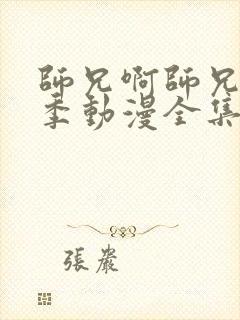 師兄啊師兄
季動漫全集
張嚴